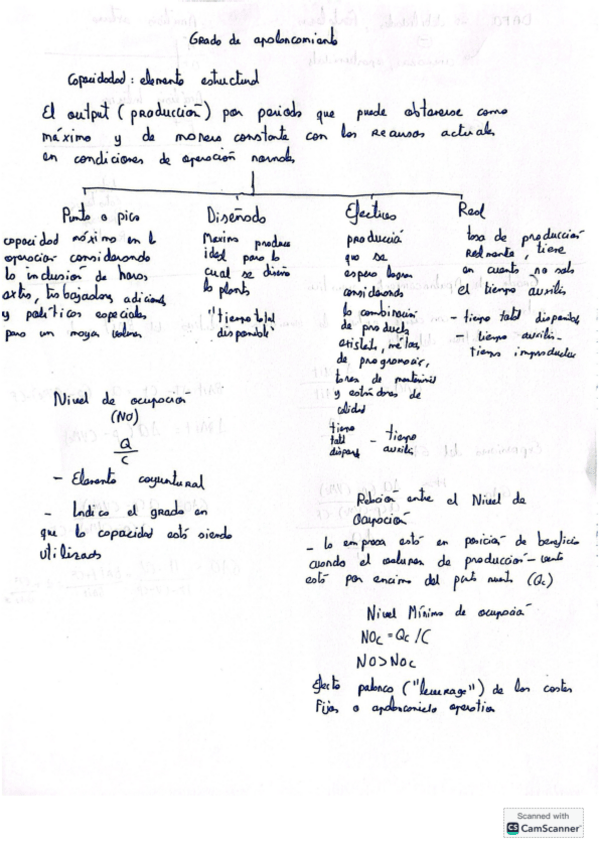 Grado de apalancamiento
Capacidad: elemento estructural
El output (producción) por periodo que puede obtenerse como
máximo y de manera constante con los recursos actuales
en condiciones de operación normales
Punta o pico
capacidad máxima en la
operación considerando
la inclusión de horas
extra, trabajadores adicionales
y políticas especiales
para un mayor volumen
Diseñada
Maxima produce
ideal para la
cual se diseñó
la planta
"tiempo total
disponible"
Efectiva
producción
que se
espera lograr
considerando
la combinación
de producto
existente, metas
de programación,
tareas de
y estándares de
calidad
tiempo
total
dispo - tiempo
auxilia
Real
tasa de producción
Realmente, tiene
en cuenta no solo
el tiempo auxilia
- tiempo total disponible
- tiempo auxilia -
tiempo improductivo
Nivel de ocupación
(NO)
Q
C
- Elemento coyuntural
- Indica el grado en
que la capacidad está siendo
utilizada
Relación entre el Nivel de
Ocupación
- La empresa está en posición de beneficio
cuando el volumen de producción - venta
está por encima del punto muerto (Qc)
Nivel Mínimo de ocupación
NOc = Qc /C
NO > NOc
Efecto palanca ("leverage") de los costes
Fijos o apalancamiento operativo
Scanned with
CS CamScanner